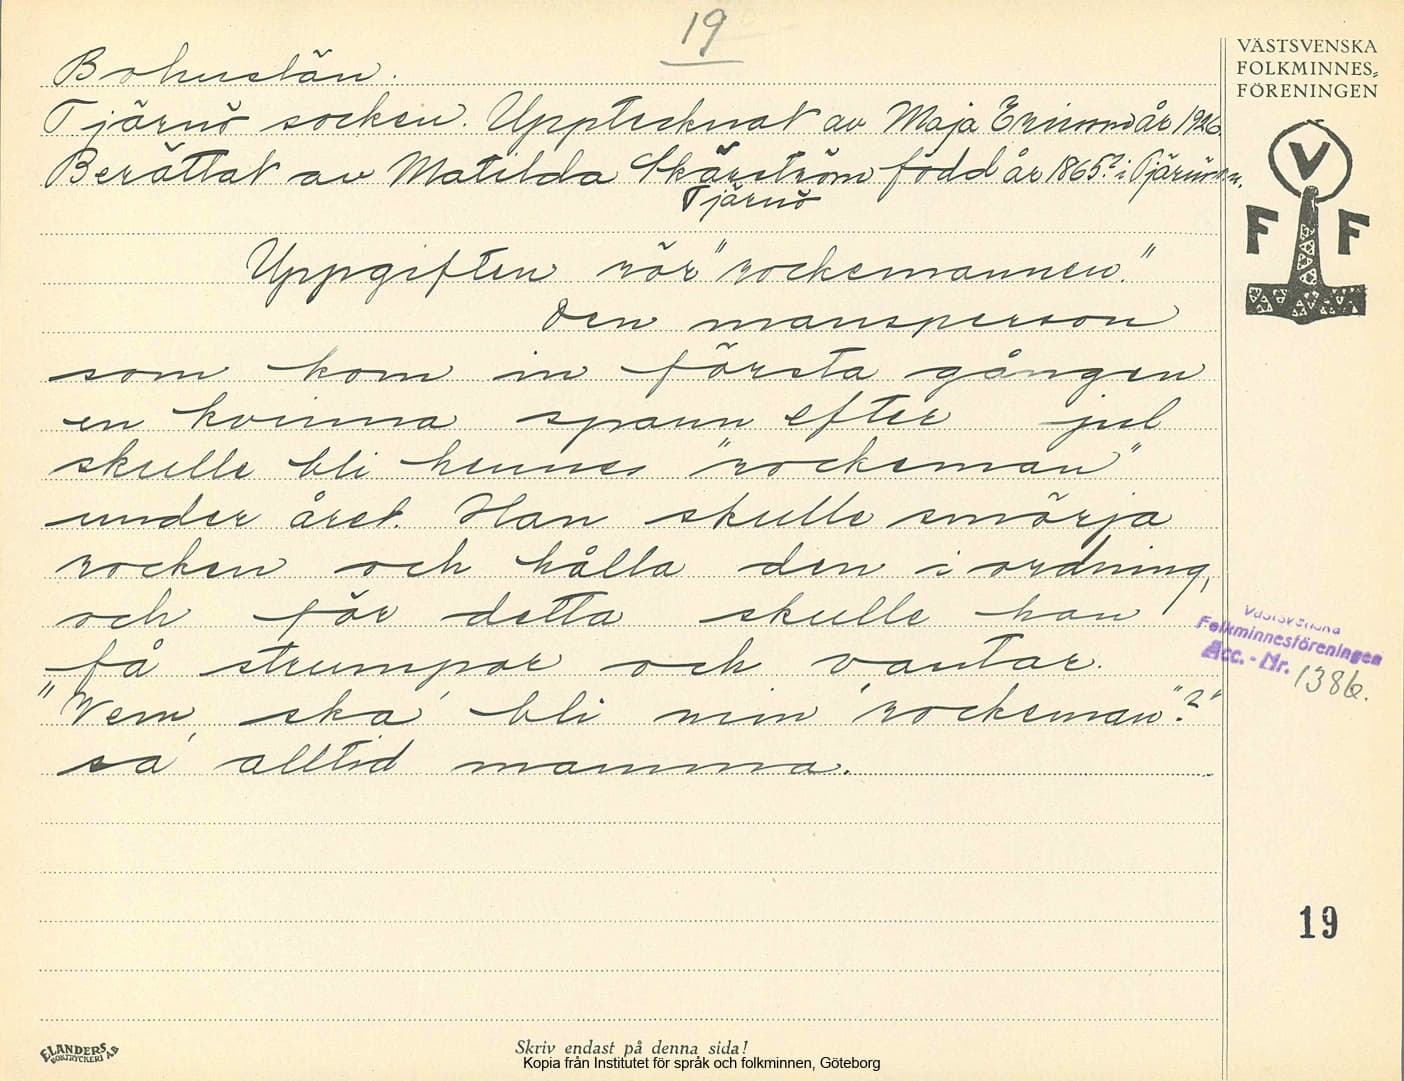 19
Bohuslän.
Tjärnö socken. Upptecknat av Maja Ericson år 1926.
Berättat av Matilda Skärström född år 1865? i Tjärnö sn.
Tjärnö
Uppgiften rör "rockemannen."
Den mansperson
som kom in första gången
en kvinna spann efter jul
skulle bli hennes "rockeman"
under året. Han skulle smörja
rocken och hålla den i ordning,
och för detta skulle han
få strumpor och vantar.
"Vem ska' bli min 'rockeman'"?"
sa' alltid mamma.
VÄSTSVENSKA
FOLKMINNES-
FÖRENINGEN
V
F F
Västsvenska
Folkminnesföreningen
Acc. - Nr. 1386.
19
ELANDERS
BOKTRYCKERI AB
Skriv endast på denna sida!
Kopia från Institutet för språk och folkminnen, Göteborg